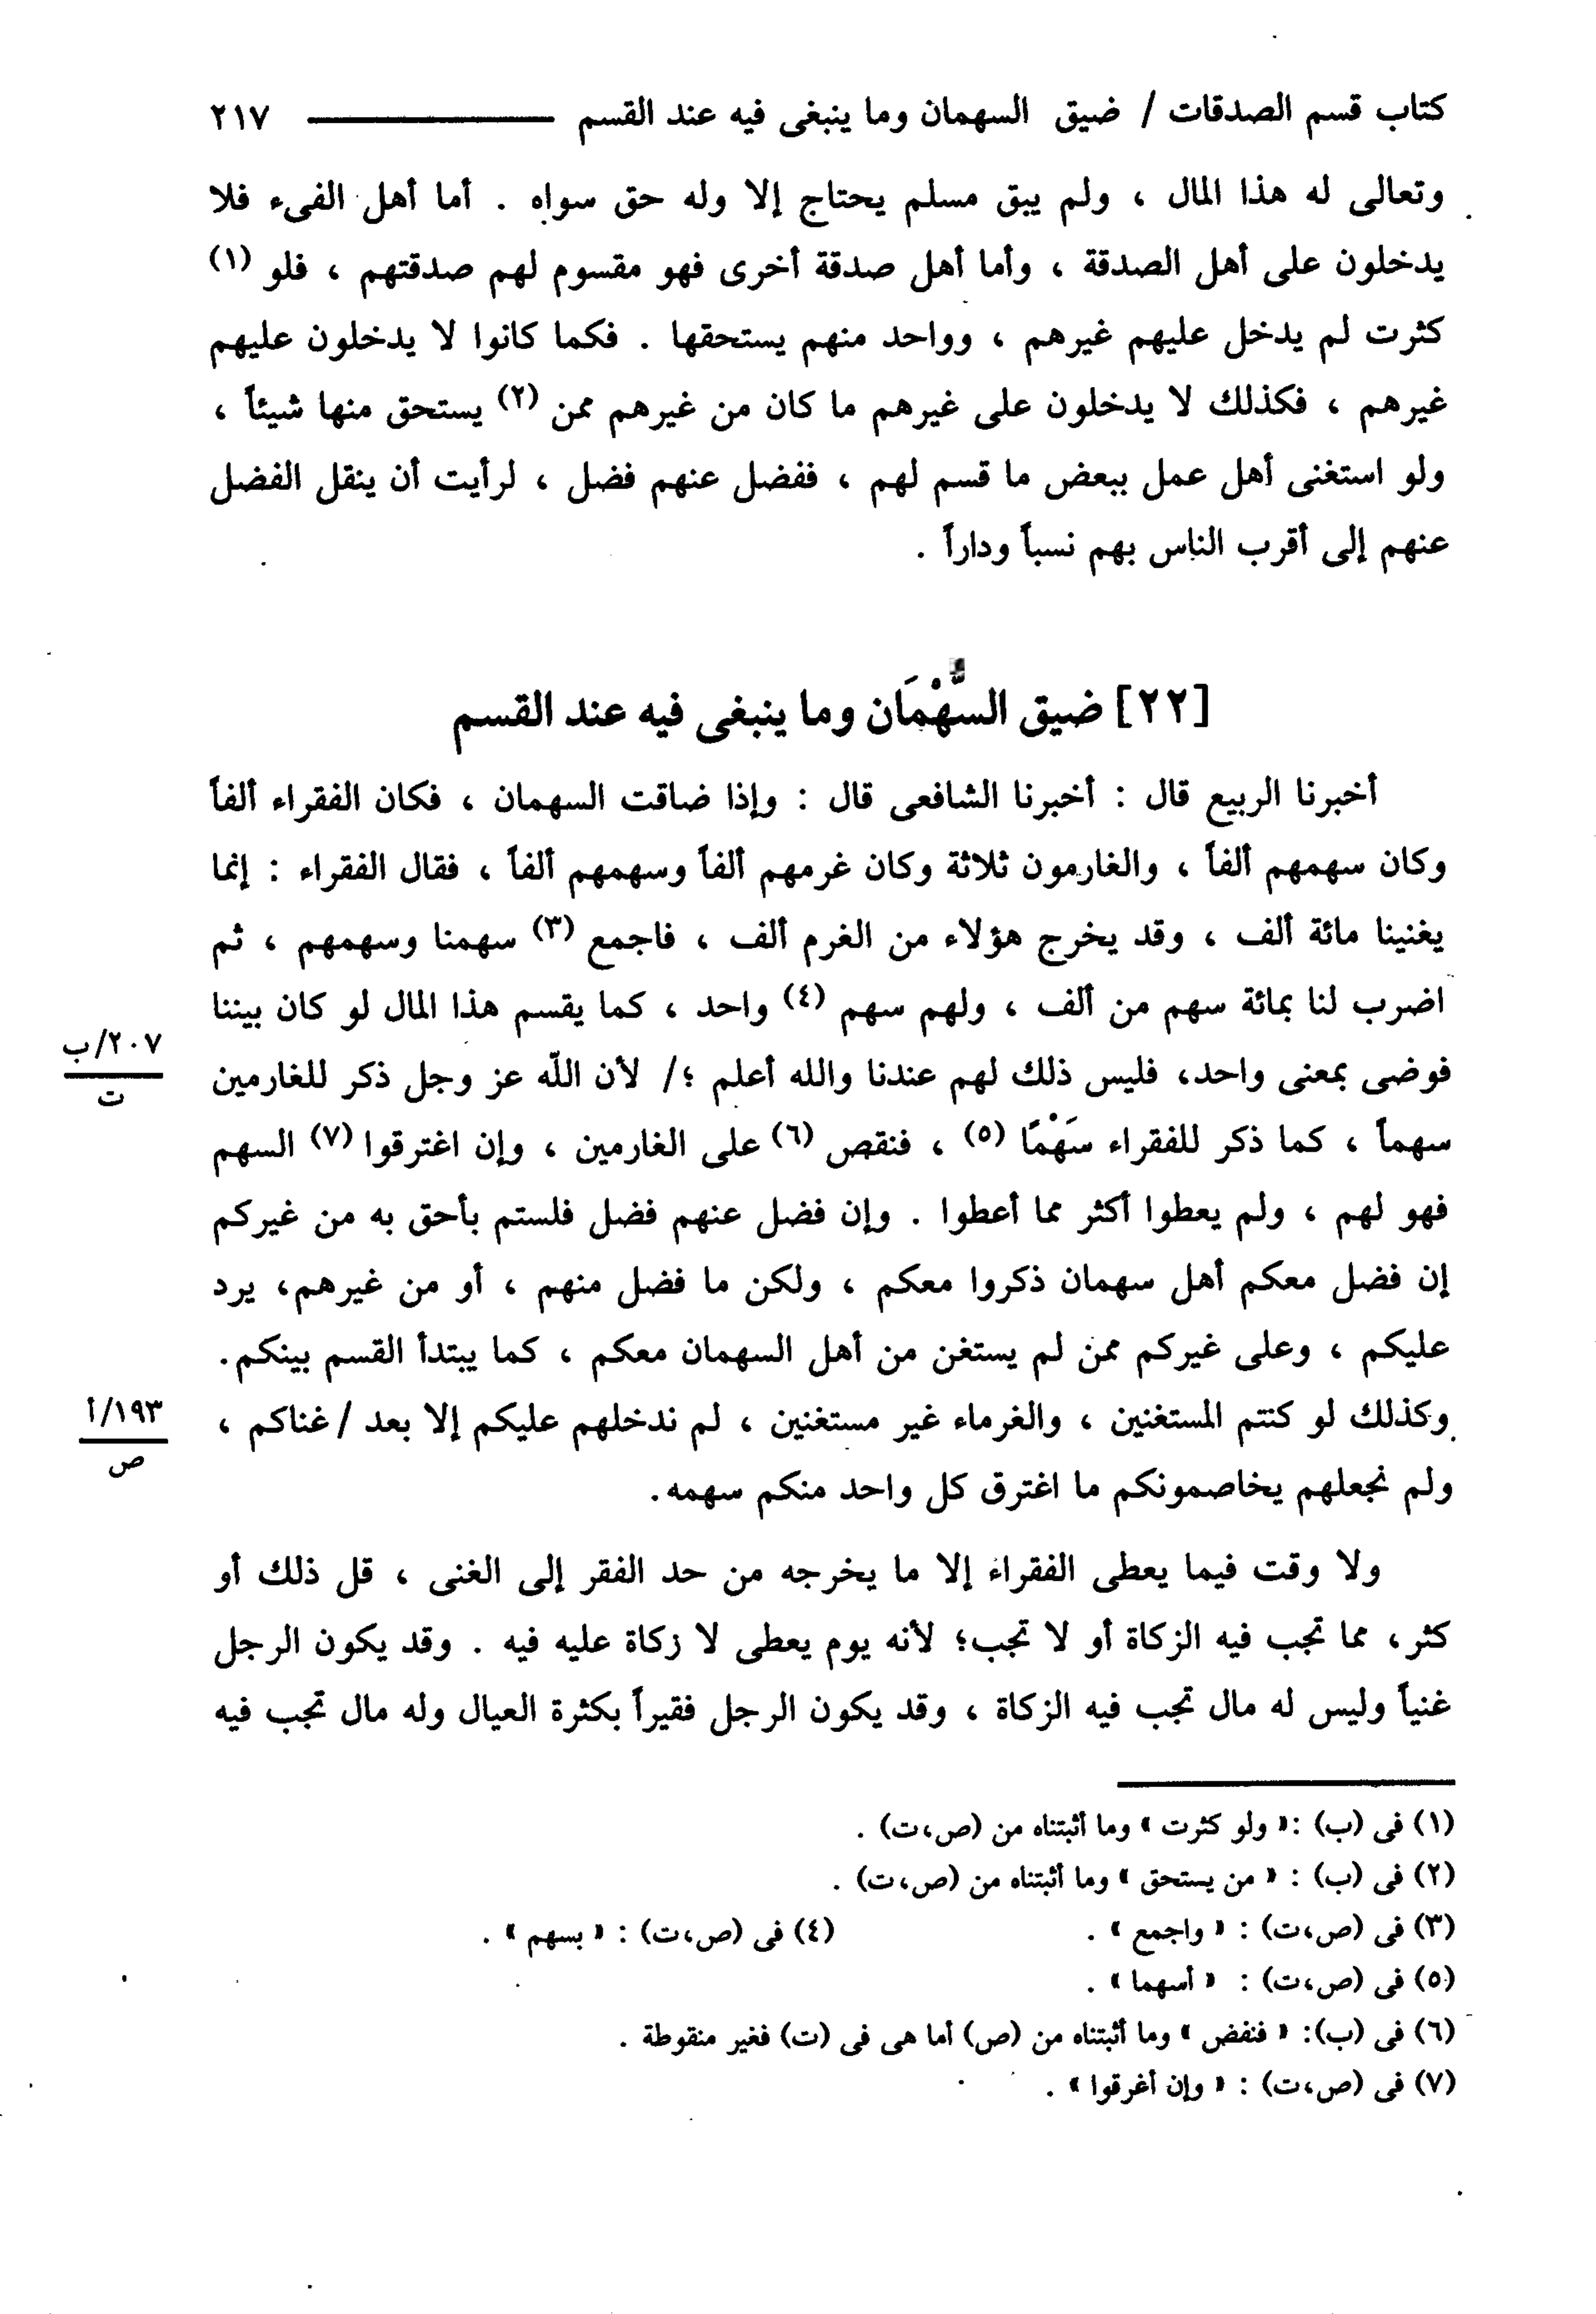 كتاب قسم الصدقات / ضيق السهمان وما ينبغى فيه عند القسم ٢١٧
وتعالى له هذا المال ، ولم يبق مسلم يحتاج إلا وله حق سواه . أما أهل الفىء فلا
يدخلون على أهل الصدقة ، وأما أهل صدقة أخرى فهو مقسوم لهم صدقتهم ، فلو (١)
كثرت لم يدخل عليهم غيرهم ، وواحد منهم يستحقها . فكما كانوا لا يدخلون عليهم
غيرهم ، فكذلك لا يدخلون على غيرهم ما كان من غيرهم ممن (٢) يستحق منها شيئاً ،
ولو استغنى أهل عمل ببعض ما قسم لهم ، ففضل عنهم فضل ، لرأيت أن ينقل الفضل
عنهم إلى أقرب الناس بهم نسباً وداراً .
[٢٢] ضيق السُّهْمَان وما ينبغى فيه عند القسم
أخبرنا الربيع قال : أخبرنا الشافعى قال : وإذا ضاقت السهمان ، فكان الفقراء ألفاً
وكان سهمهم ألفاً ، والغارمون ثلاثة وكان غرمهم ألفاً وسهمهم ألفاً ، فقال الفقراء : إنما
يغنينا مائة ألف ، وقد يخرج هؤلاء من الغرم ألف ، فاجمع (٣) سهمنا وسهمهم ، ثم
اضرب لنا بمائة سهم من ألف ، ولهم سهم (٤) واحد ، كما يقسم هذا المال لو كان بيننا
٢٠٧/ب
ت
فوضى بمعنى واحد، فليس ذلك لهم عندنا والله أعلم ؛/ لأن الله عز وجل ذكر للغارمين
سهماً ، كما ذكر للفقراء سَهْمًا (٥) ، فنقص (٦) على الغارمين ، وإن اغترقوا (٧) السهم
فهو لهم ، ولم يعطوا أكثر مما أعطوا . وإن فضل عنهم فضل فلستم بأحق به من غيركم
إن فضل معكم أهل سهمان ذكروا معكم ، ولكن ما فضل منهم ، أو من غيرهم، يرد
عليكم ، وعلى غيركم ممن لم يستغن من أهل السهمان معكم ، كما يبتدأ القسم بينكم.
وكذلك لو كنتم المستغنين ، والغرماء غير مستغنين ، لم ندخلهم عليكم إلا بعد /غناكم ،
١٩٣/أ
ص
ولم نجعلهم يخاصمونكم ما اغترق كل واحد منكم سهمه.
ولا وقت فيما يعطى الفقراء إلا ما يخرجه من حد الفقر إلى الغنى ، قل ذلك أو
كثر، مما تجب فيه الزكاة أو لا تجب؛ لأنه يوم يعطى لا زكاة عليه فيه . وقد يكون الرجل
غنياً وليس له مال تجب فيه الزكاة ، وقد يكون الرجل فقيراً بكثرة العيال وله مال تجب فيه
(١) فى (ب) :« ولو كثرت » وما أثبتناه من (ص،ت) .
(٢) فى (ب) : « من يستحق » وما أثبتناه من (ص،ت) .
(٣) فى (ص،ت) : « واجمع » . (٤) فى (ص،ت) : « بسهم » .
(٥) فى (ص،ت) : « أسهما » .
(٦) فى (ب): « فنفض » وما أثبتناه من (ص) أما هى فى (ت) فغير منقوطة .
(٧) فى (ص،ت) : « وإن أغرقوا » .